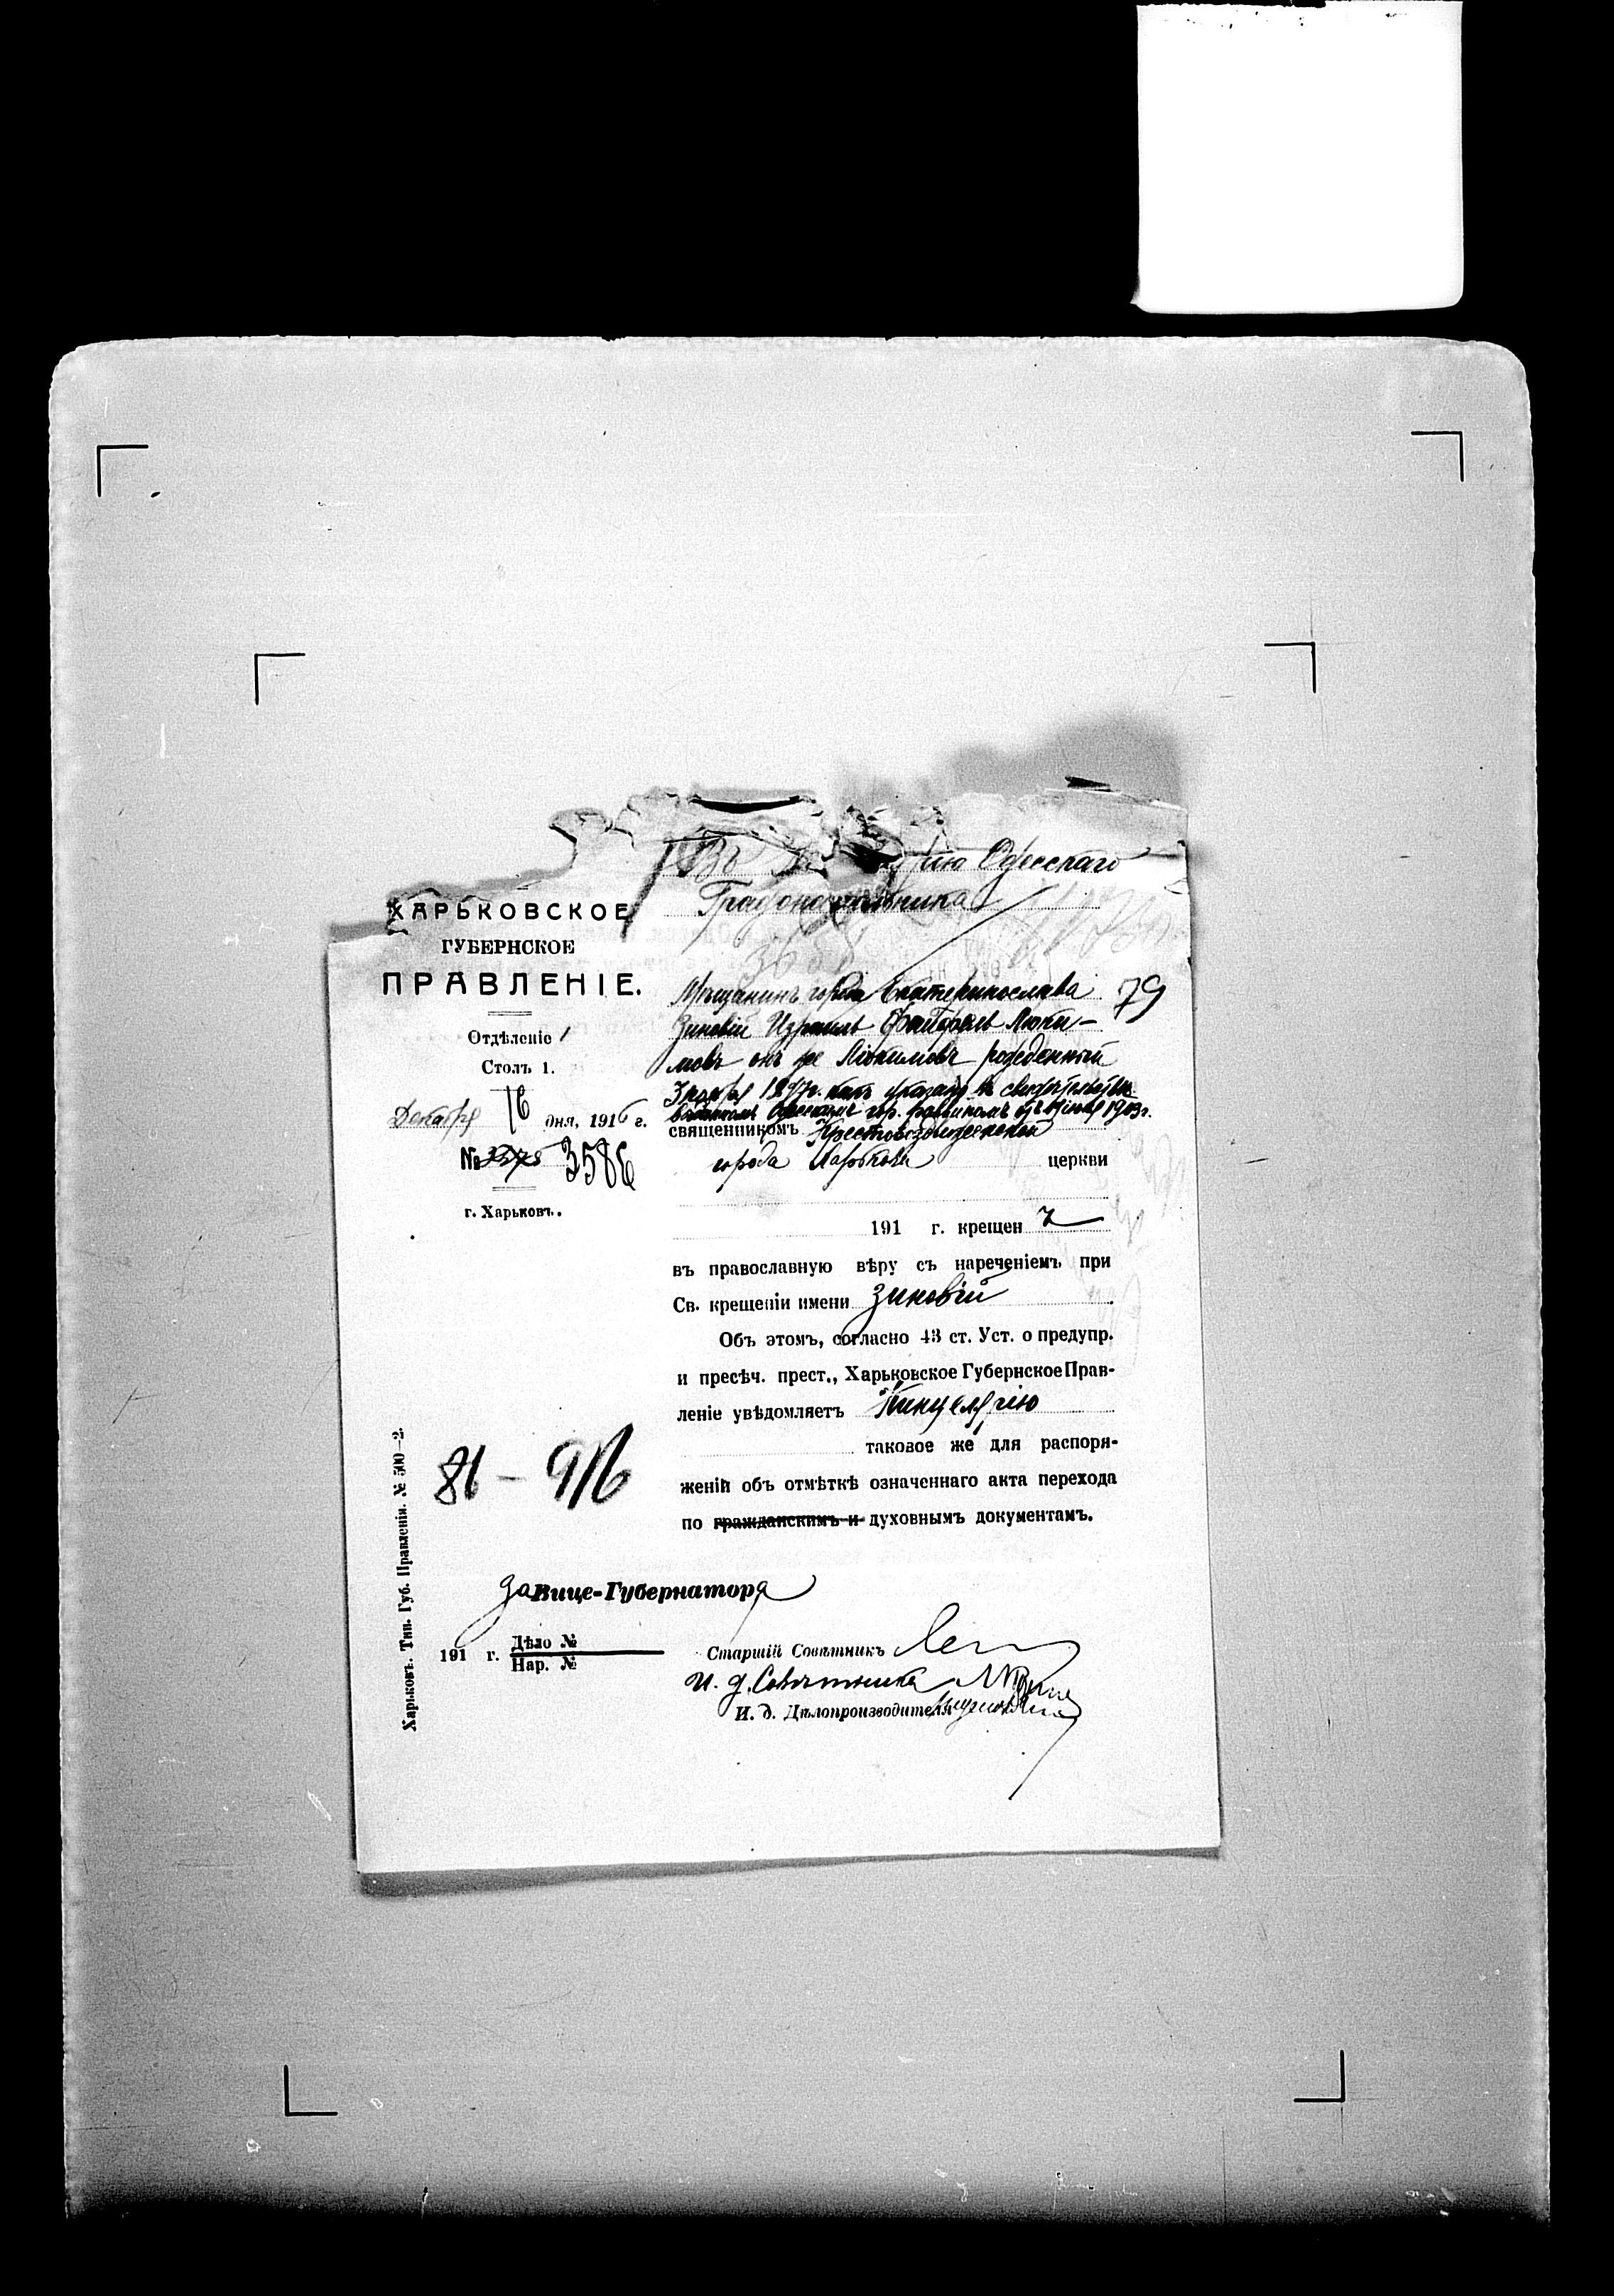 Въ Одесскаго
Градоначальника
ХАРЬКОВСКОЕ
ГУБЕРНСКОЕ
ПРАВЛЕНІЕ.
Отдѣленіе 1
Столъ 1.
Декабря 16 дня, 1916 г.
№ 3586
г. Харьковъ.
79
Мѣщанинъ города Екатеринослава
Зиновій Израиль Файфель Люки-
мовъ онъ же Люкимовъ рожденный
3 1897г. какъ указано въ
Одесскимъ гор. раввиномъ 1903г.
священникомъ Крестовоздвиженской
города Харькова церкви
191 г. крещен ъ
въ православную вѣру съ нареченіемъ при
Св. крещеніи имени Зиновій
Объ этомъ, согласно 43 ст. Уст. о предупр.
и пресѣч. прест., Харьковское Губернское Прав-
леніе увѣдомляетъ Канцелярію
таковое же для распоря-
женій объ отмѣткѣ означеннаго акта перехода
по гражданскимъ и духовнымъ документамъ.
86 – 916
За Вице-Губернатора
191 г. Дѣло №
Нар. №
Старшій Совѣтникъ
И. д. Совѣтника
И. д. Дѣлопроизводителя
Харьковъ. Тип. Губ. Правленія. № 500—2.